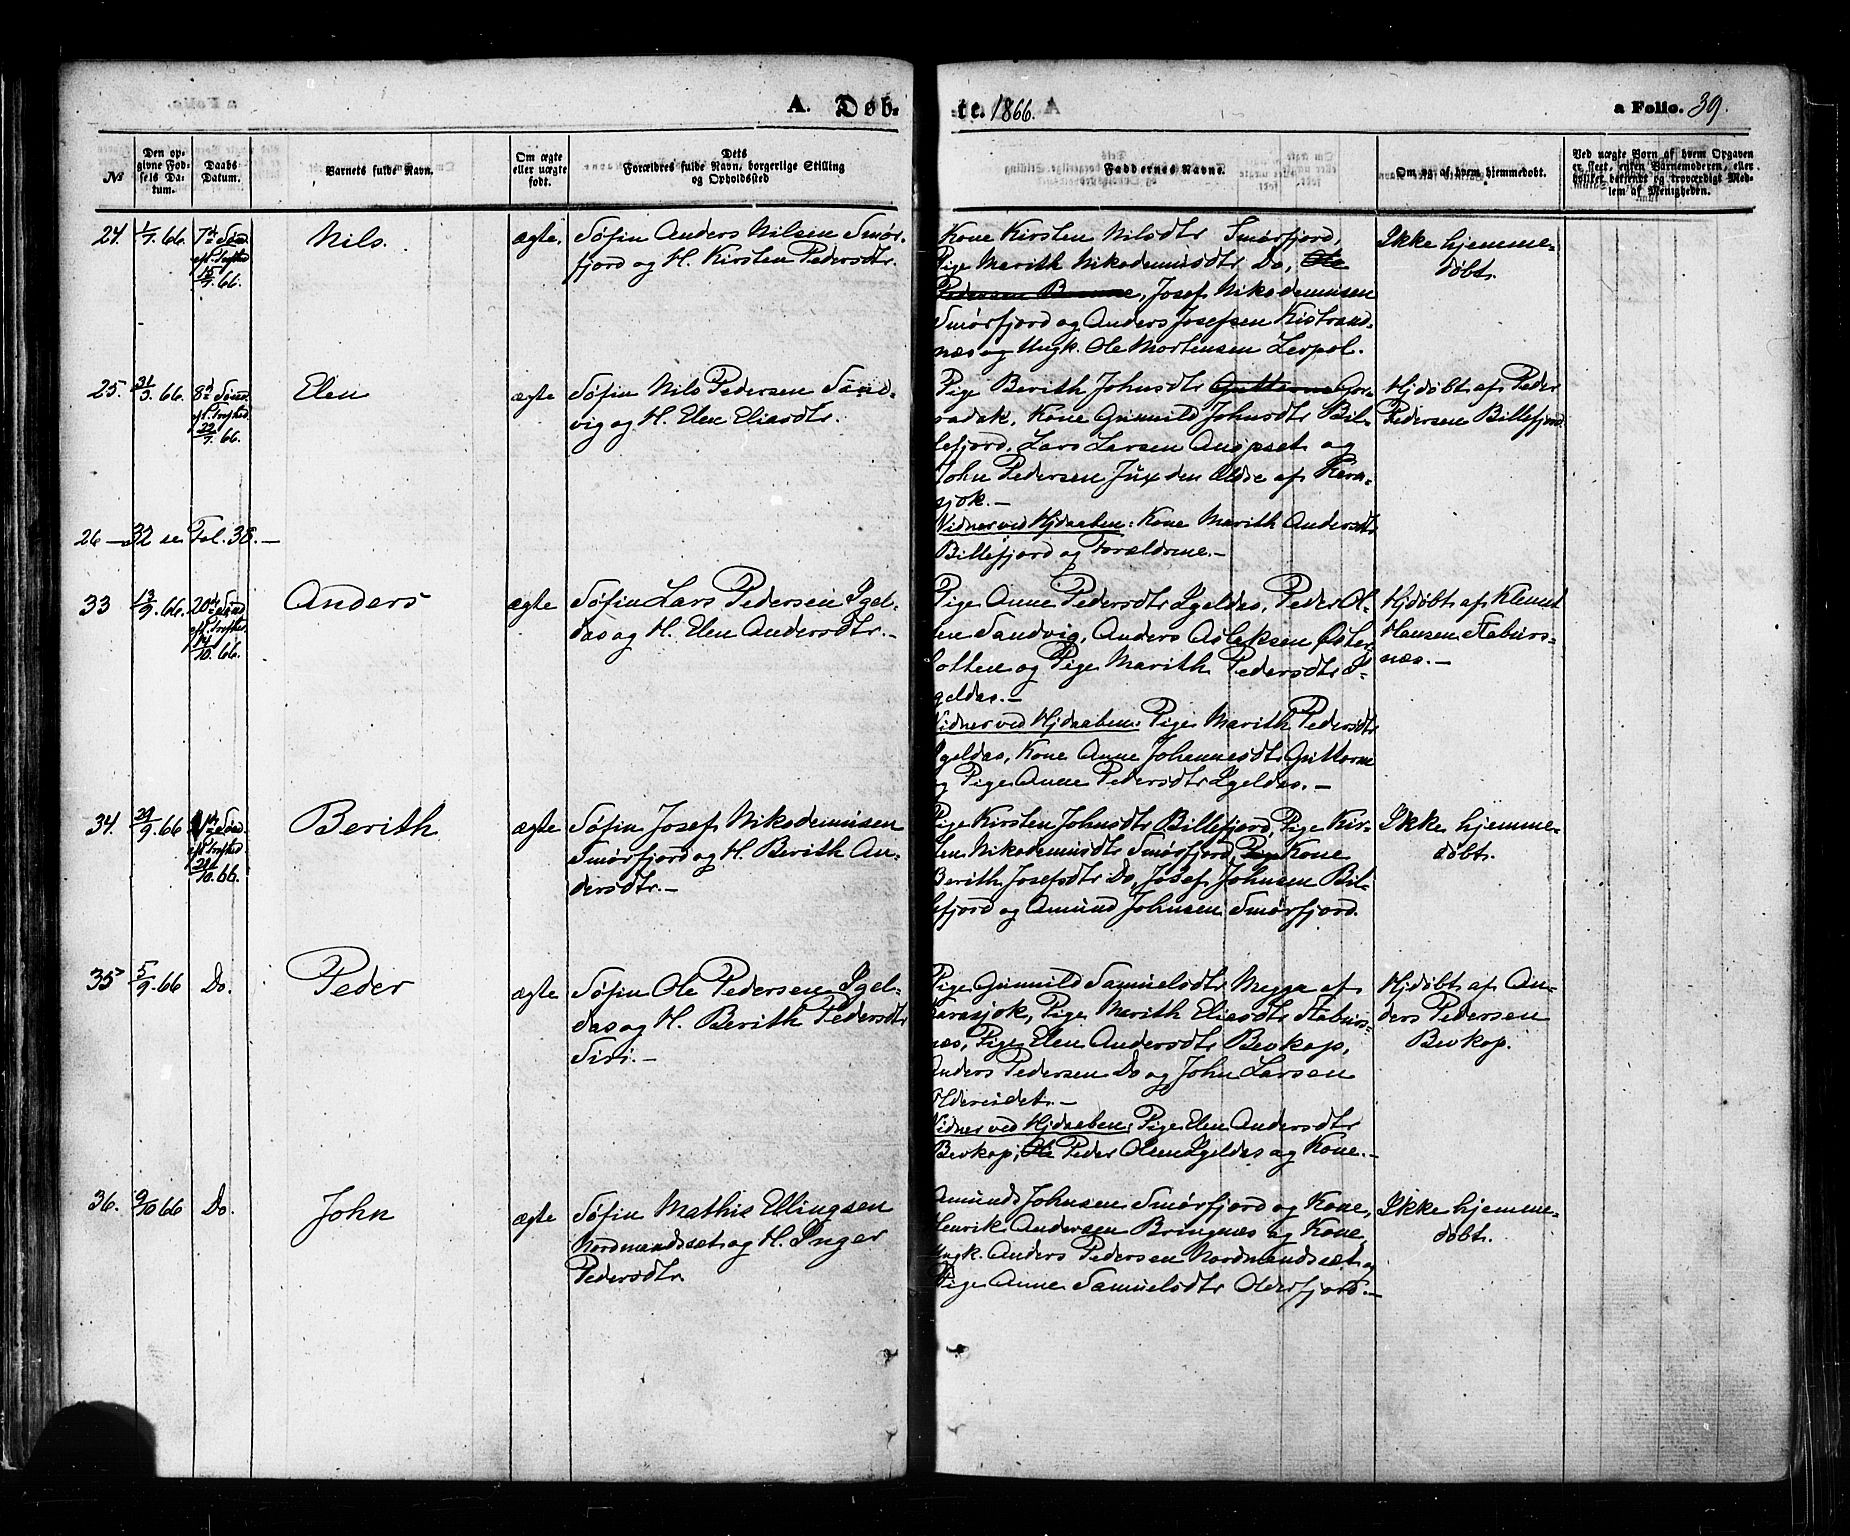 A. Døb-
te. 1866.
a Folio. 39.
No
Den op-
givne Fød-
sels Da-
tum.
Daabs-
Datum.
Barnets fulde Navn.
Om ægte
eller uægte
født.
Dets
Forældres fulde Navn, borgerlige Stilling
og Opholdssted
Faddernes Navne.
Om og af hvem hjemmedøbt.
Ved uægte Børn af hvem Opgaven
er skeet, enten Barnemoderen, eller
hvilket bekjendt og troværdigt Med-
lem af Menigheden.
24.
1/7. 66.
7de Sønd.
eft. Trefhed
15/7. 66.
Nils.
ægte.
Søfin Anders Nilsen Smør-
fjord og H. Kirsten Pedersdtr.
Kone Kirsten Nilsdtr Smørfjord,
Pige Marith Nikodemusdtr Do, Ole
Pedersen, Josef Nikodemusen
Smørfjord og Anders Josefsen Kistrand-
næs og Ungk. Ole Mortensen Lerpol.
Ikke hjemme-
døbt.
25.
31/5. 66.
8de Sønd.
eft. Trefhed
22/7. 66.
Elen
ægte
Søfin Nils Pedersen Sand-
vig og H. Elen Eliasdtr.
Pige Berith Johnsdtr Guttorm Gor-
vadak, Kone Gunnild Johnsdtr Bil-
lefjord, Lars Larsen Anopset og
John Pedersen Jux den Ældre af Kara-
sjok.-
Vidner ved Hjdaaben: Kone Marith Andersdtr
Billefjord og Forældrene.-
Hjdøbt af Peder
Pedersen Billefjord.
26 - 32 se Fol. 38.-
33
13/9. 66.
20de Sønd.
eft. Trefhed
14/10. 66.
Anders
ægte
Søfin Lars Pedersen Igel-
das og H. Elen Andersdtr.-
Pige Anne Pedersdtr Igeldas, Peder Ol-
sen Sandvig, Anders Aslaksen Øster-
botten og Pige Marith Pedersdtr I-
geldas.-
Vidner ved Hjdaaben: Pige Marith Pedersdtr
Igeldas, Kone Anne Johannesdtr Guttorm
og Pige Anne Pedersdtr Igeldas.-
Hjdøbt af Klemet
Hansen Staburs-
næs.-
34.
29/9. 66
eft. Trefhed
21/10. 66.
Berith
ægte
Søfin Josef Nikodemusen
Smørfjord og H. Berith An-
dersdtr.-
Pige Kirsten Johnsdtr Billefjord, Pige Kir-
sten Nikodemusdtr Smørfjord, Pige Kone
Berith Josefsdtr Do, Josef Johnsen Bil-
lefjord og Amund Johnsen Smørfjord.
Ikke hjemme-
døbt.
35
5/9. 66
Do.
Peder
ægte
Søfin Ole Pedersen Igel-
das og H. Berith Pedersdtr
Siri.-
Pige Gunnild Samuelsdtr Megga af
Karasjok, Pige Marith Eliasdtr Staburs-
næs, Pige Elen Andersdtr Bevkop,
Anders Pedersen Do og John Larsen
Oldereidet.-
Vidner ved Hjdaaben: Pige Elen Andersdtr
Bevkop, Ole Peder Olsen Igeldas og Kone.-
Hjdøbt af An-
ders Pedersen
Bevkop.
36.
9/10 66
Do.
John
ægte
Søfin Mathis Ellingsen
Nordmandssæt og H. Inger
Pedersdtr.
Amund Johnsen Smørfjord og Kone,
Henrik Andersen Bringnæs og Kone,
Ungk. Anders Pedersen Nordmandssæt og
Pige Anne Samuelsdtr Olderfjord.-
Ikke hjemme-
døbt.